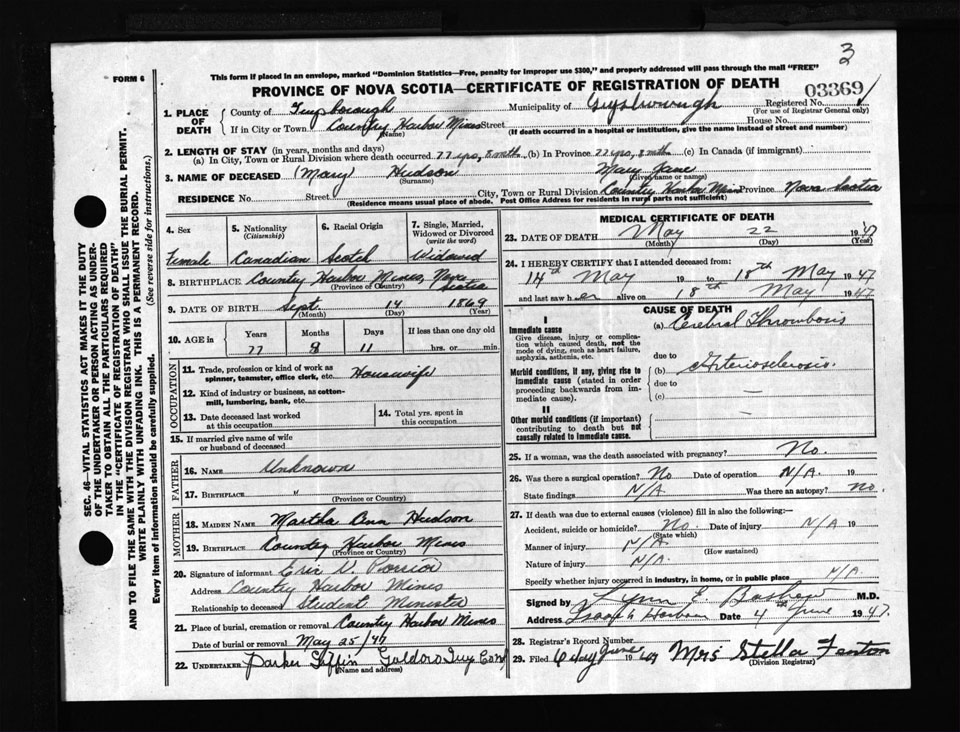 3
FORM 6
This form if placed in an envelope, marked "Dominion Statistics—Free, penalty for improper use $300," and properly addressed will pass through the mail "FREE"
PROVINCE OF NOVA SCOTIA—CERTIFICATE OF REGISTRATION OF DEATH
03369
1. PLACE OF DEATH
County of Guysborough Municipality of Guysborough Registered No.
(For use of Registrar General only)
If in City or Town Country Harbor Mines Street House No.
(Name) (If death occurred in a hospital or institution, give the name instead of street and number)
2. LENGTH OF STAY (in years, months and days)
(a) In City, Town or Rural Division where death occurred 77 yrs, 8 mth (b) In Province 77 yrs, 8 mth (c) In Canada (if immigrant)
3. NAME OF DECEASED (Mary) Hudson Mary Jane
(Surname) (Given name or names)
RESIDENCE No. Street City, Town or Rural Division Country Harbor Mines Province Nova Scotia
(Residence means usual place of abode. Post Office Address for residents in rural parts not sufficient)
4. Sex
Female
5. Nationality (Citizenship)
Canadian
6. Racial Origin
Scotch
7. Single, Married, Widowed or Divorced (write the word)
Widowed
8. BIRTHPLACE Country Harbor Mines, Nova Scotia
(Province or Country)
9. DATE OF BIRTH Sept. 14 1869
(Month) (Day) (Year)
10. AGE in Years Months Days If less than one day old
77 8 11 hrs. or min.
OCCUPATION
11. Trade, profession or kind of work as spinner, teamster, office clerk, etc. Housewife
12. Kind of industry or business, as cotton-mill, lumbering, bank, etc.
13. Date deceased last worked at this occupation
14. Total yrs. spent in this occupation
15. If married give name of wife or husband of deceased
FATHER
16. NAME Unknown
17. BIRTHPLACE "
(Province or Country)
MOTHER
18. MAIDEN NAME Martha Ann Hudson
19. BIRTHPLACE Country Harbor Mines
(Province or Country)
20. Signature of informant Eric
Address Country Harbor Mines
Relationship to deceased Student Minister
21. Place of burial, cremation or removal Country Harbor Mines
Date of burial or removal May 25/47
22. UNDERTAKER Parker Goldboro Guy Co
(Name and address)
MEDICAL CERTIFICATE OF DEATH
23. DATE OF DEATH May 22 1947
(Month) (Day) (Year)
24. I HEREBY CERTIFY that I attended deceased from:
14th May 19 to 18th May 1947
and last saw her alive on 18th May 1947.
CAUSE OF DEATH
I
Immediate cause
Give disease, injury or complication which caused death, not the mode of dying, such as heart failure, asphyxia, asthenia, etc.
(a) Cerebral Thrombosis
due to
Morbid conditions, if any, giving rise to immediate cause (stated in order proceeding backwards from immediate cause).
(b) Arteriosclerosis.
due to —
(c) —
II
Other morbid conditions (if important) contributing to death but not causally related to immediate cause.
25. If a woman, was the death associated with pregnancy? No.
26. Was there a surgical operation? No Date of operation N/A. 19
State findings N/A. Was there an autopsy? No.
27. If death was due to external causes (violence) fill in also the following:—
Accident, suicide or homicide? No. Date of injury N/A 19
(State which)
Manner of injury N/A.
(How sustained)
Nature of injury N/A.
Specify whether injury occurred in industry, in home, or in public place N/A.
Signed by Lynn E M.D.
Address Isaac's Harbour Date 4th June 1947.
28. Registrar's Record Number
29. Filed 6 day June 19 Mrs Stella Fenton
(Division Registrar)
SEC. 46—VITAL STATISTICS ACT MAKES IT THE DUTY
OF THE UNDERTAKER OR PERSON ACTING AS UNDER-
TAKER TO OBTAIN ALL THE PARTICULARS REQUIRED
IN THE "CERTIFICATE OF REGISTRATION OF DEATH"
AND TO FILE THE SAME WITH THE DIVISION REGISTRAR WHO SHALL ISSUE THE BURIAL PERMIT.
WRITE PLAINLY WITH UNFADING INK. THIS IS A PERMANENT RECORD.
Every item of Information should be carefully supplied. (See reverse side for instructions.)